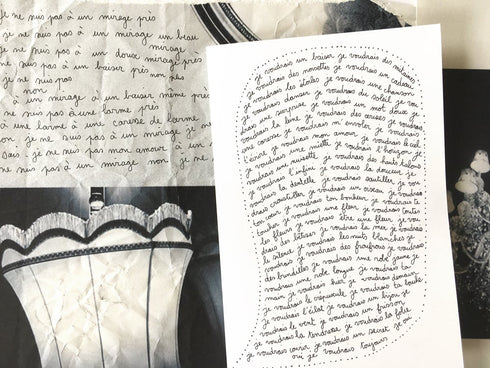 Je ne suis pas à un mirage près
je ne suis pas à un mirage un beau
mirage
je ne suis pas à un doux mirage près
je ne suis pas à un baiser près non plus
je ne suis pas
non
à un mirage à un baiser même près
ne suis pas à une larme près
à une larme à une caresse de larme
non je ne suis pas à un mirage près
je ne suis pas mon amour à un
ne suis pas à un mirage non je ne
je voudrais un baiser je voudrais des
je voudrais des menottes je voudrais un cadeau
je voudrais les étoiles je voudrais une chanson
je voudrais danser je voudrais du soleil je vou
drais une surprise je voudrais un mot doux je
voudrais la lune je voudrais des cerises je voudrais
une caresse je voudrais m'envoler je voudrais
je voudrais mon amour je voudrais le ciel
je voudrais une miette je voudrais l'horizon je
voudrais une noisette je voudrais des hauts talons
je voudrais l'infini je voudrais la douceur je
voudrais la dentelle je voudrais sautiller je vou
drais croustiller je voudrais un oiseau je voudrais
je voudrais ton bonheur je voudrais te
toucher je voudrais une fleur je voudrais toutes
les fleurs je voudrais être une fleur je vou
drais des bêtises je voudrais la mer je voudrais
le silence je voudrais les nuits blanches je
voudrais je voudrais des froufrous je voudrais
des brindilles je voudrais une robe jaune je
voudrais une robe longue je voudrais ta
main je voudrais hier je voudrais demain
je voudrais le crépuscule je voudrais ta bouche
je voudrais l'été je voudrais un bijou je
voudrais le vent je voudrais un frisson
je voudrais la tendresse je voudrais la folie
je voudrais courir je voudrais un secret je
oui je voudrais toujours